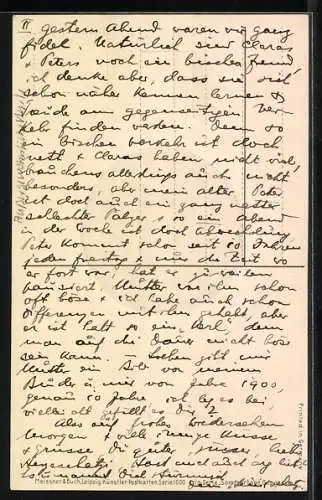 II gestern Abend waren wir ganz
fidel. Natürlich sind Claras
& Peters noch ein bischen fremd,
ich denke aber, dass sie sich
schon näher kennen lernen &
Freude am gegenseitigen Ver-
kehr finden werden. Denn so
ein bischen Verkehr ist doch
nett & Claras haben nicht viel,
brauchens allerdings auch nicht
besonders, aber mein alter Peter
ist doch auch ein ganz netter
schlechter & so ein Abend
in der Woche ist doch Abwechslung
Peter kommt schon seit 10 Jahren
jeden Freitag & nur die Zeit wo
er fort war, hat er zuweilen
pausiert. Mutter war ihm schon
oft böse & ich habe auch schon
Differenzen mit ihm gehabt, aber
er ist halt so ein Kerl, dem
man auf die Dauer nicht böse
sein kann. Soeben gibt mir
Mutter ein Bild von meinem
Bruder & mir vom Jahre 1900,
genau 10 Jahre, ich leg es bei
vielleicht gefällt es Dir?
Also auf frohes Wiedersehen
morgen & viele innige Küsse
& Grüsse die guter, süsser, lieber
Meissner & Buch, Leipzig Künstler-Postkarten, Serie 1600
Printed in